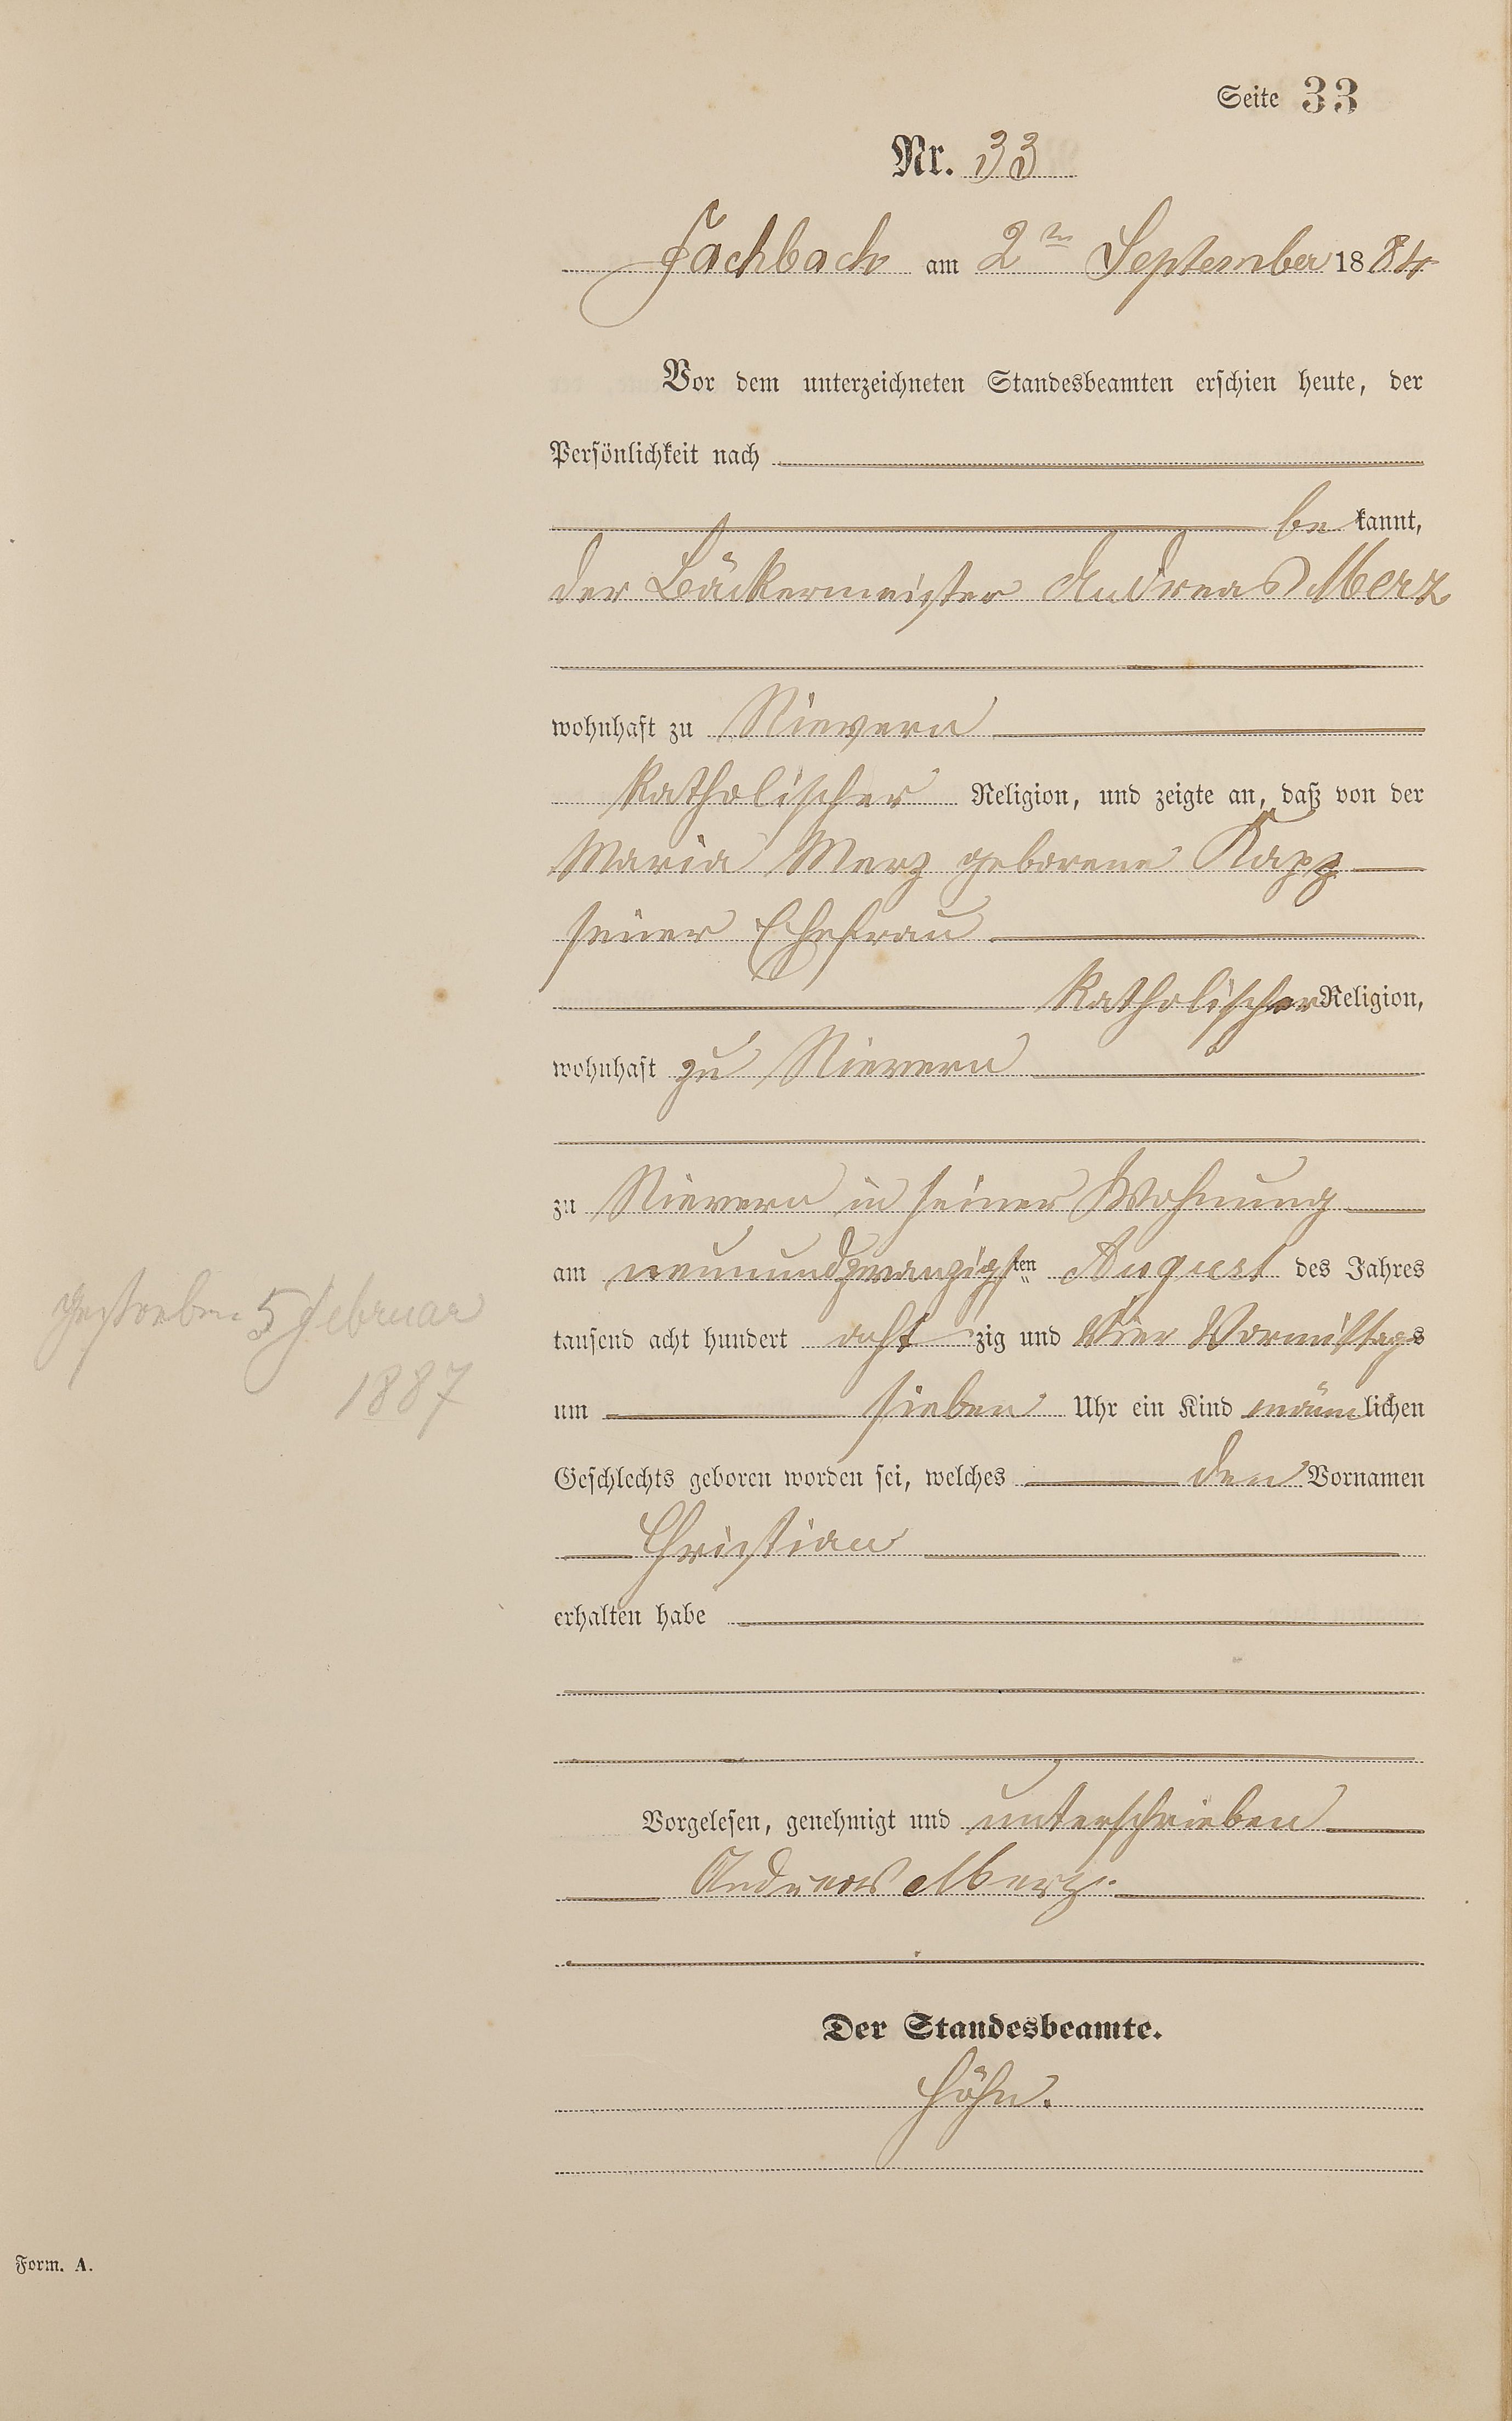 Seite 33
Nr. 33
Fachbach am 2ten September 1884
Vor dem unterzeichneten Standesbeamten erschien heute, der
Persönlichkeit nach
be kannt,
der Bäckermeister Andreas Merz
wohnhaft zu Nievern
katholischer Religion, und zeigte an, daß von der
Maria Merz geborene Kapp
seiner Ehefrau
katholischer Religion,
wohnhaft zu Nievern
zu Nievern in seiner Wohnung
am neunundzwanzigsten August des Jahres
tausend acht hundert acht zig und vier Vormittags
um sieben Uhr ein Kind männlichen
Geschlechts geboren worden sei, welches den Vornamen
Christian
erhalten habe
gestorben 5 Februar
1887
Vorgelesen, genehmigt und unterschrieben
Andreas Merz.
Der Standesbeamte.
Höhn.
Form. A.